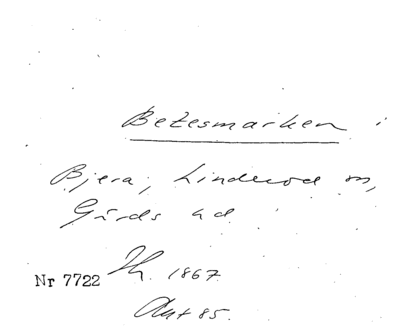 Betesmarken i
Bjera, Linderod sn,
Gärds hd
Nr 7722 Th. 1867
Akt 85.